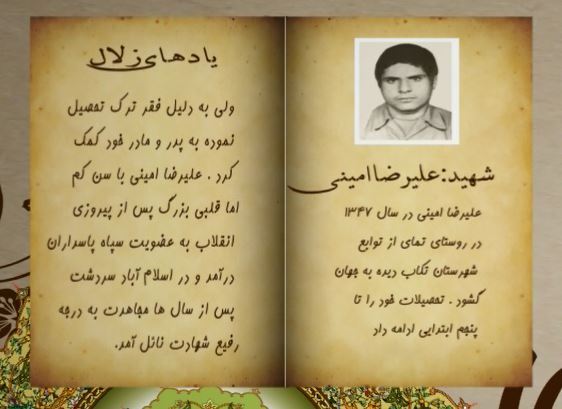 شهید:علیرضا امینی
علیرضا امینی در سال ۱۳۴۷
در روستای تمای از توابع
شهرستان تکاب دیده به جهان
گشود . تحصیلات خود را تا
پنجم ابتدایی ادامه داد
یادهای زلال
ولی به دلیل فقر ترک تحصیل
نموده به پدر و مادر خود کمک
کرد . علیرضا امینی با سن کم
اما قلبی بزرگ پس از پیروزی
انقلاب به عضویت سپاه پاسداران
درآمد و در اسلام آباد سردشت
پس از سال ها مجاهدت به درجه
رفیع شهادت نائل آمد.